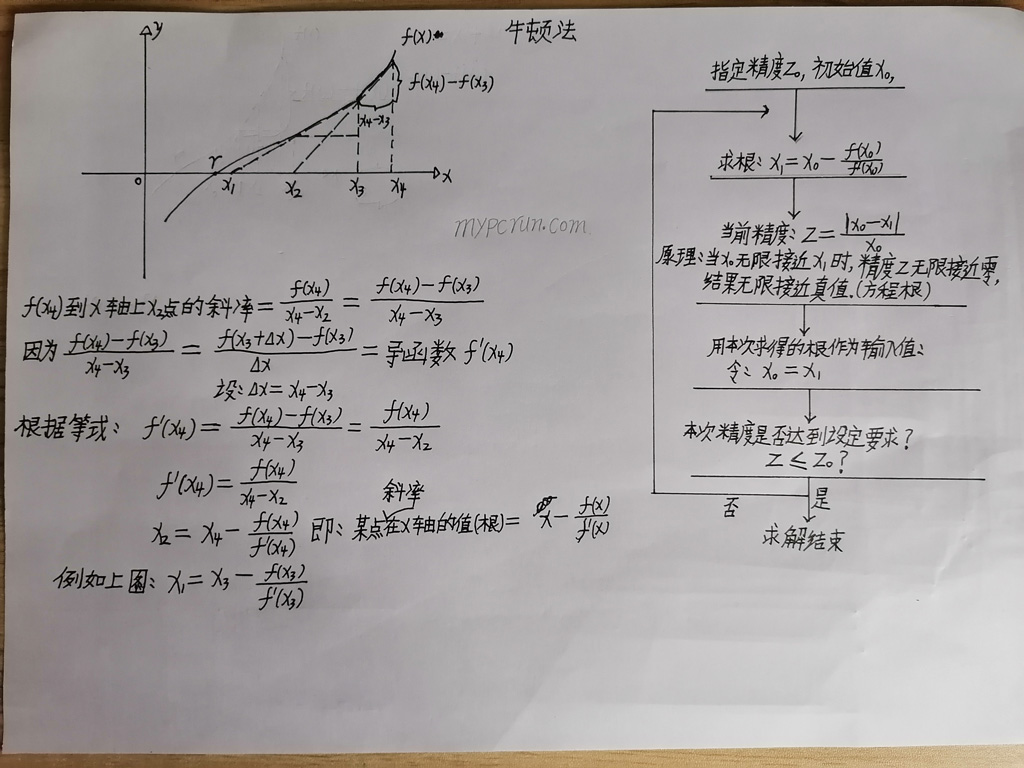 牛顿法
y
f(x)
f(x₄)-f(x₃)
x₄-x₃
r
o x₁ x₂ x₃ x₄ x
mypcrun.com
f(x₄)到x轴上x₂点的斜率 = f(x₄)/(x₄-x₂) = (f(x₄)-f(x₃))/(x₄-x₃)
因为 (f(x₄)-f(x₃))/(x₄-x₃) = (f(x₃+Δx)-f(x₃))/Δx = 导函数 f'(x₄)
设:Δx = x₄-x₃
根据等式: f'(x₄) = (f(x₄)-f(x₃))/(x₄-x₃) = f(x₄)/(x₄-x₂)
f'(x₄) = f(x₄)/(x₄-x₂)
斜率
x₂ = x₄ - f(x₄)/f'(x₄) 即: 某点在x轴的值(根) = x - f(x)/f'(x)
例如上圖: x₁ = x₃ - f(x₃)/f'(x₃)
指定精度Z₀, 初始值x₀,
求根: x₁ = x₀ - f(x₀)/f'(x₀)
当前精度: Z = |x₀-x₁|/x₀
原理:当x₀无限接近x₁时,精度Z无限接近零,
结果无限接近真值.(方程根)
用本次求得的根作为输入值:
令: x₀ = x₁
本次精度是否达到设定要求?
Z ≤ Z₀?
否 是
求解结束